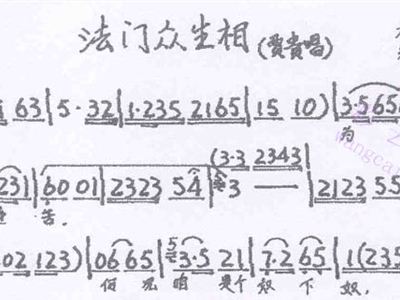 法门众生相(贾贵唱)
63 | 5· 32 | 1·235 2165 | 15 10) | 3·565
为
(3·3 2343 |
231) | 60 01 | 2323 54 | 3 — — | 2123 55
苦.
02 123) | 06 65 | 3·5 21 | 7·2 65 | 1 (235
但 咱 是个 奴 下 奴.